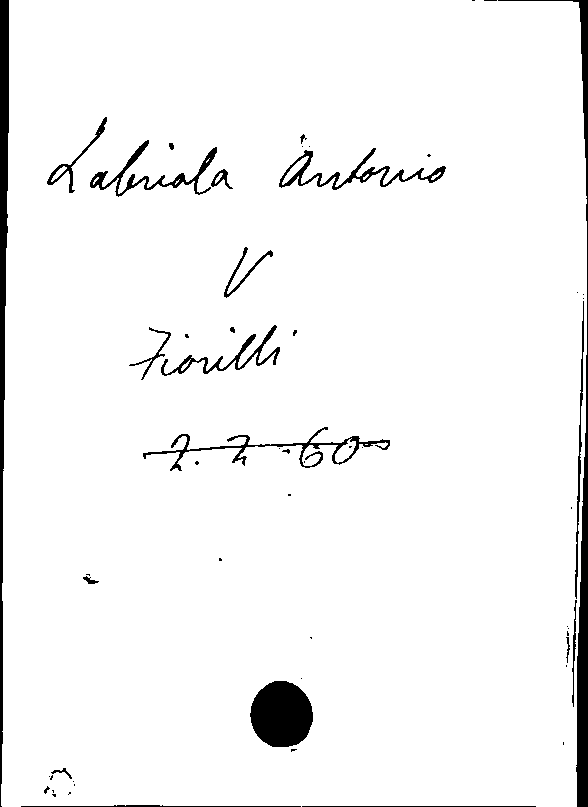 Labriola Antonio
V
Fiorilli
2.2.60